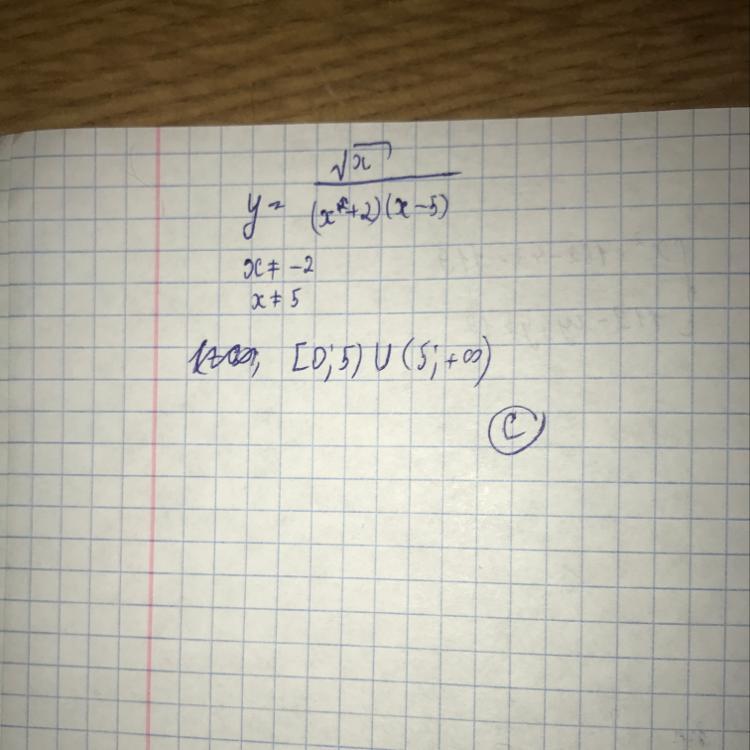 y = √x / (x+2)(x-5)
x ≠ -2
x ≠ 5
[0; 5) ∪ (5; +∞)
C